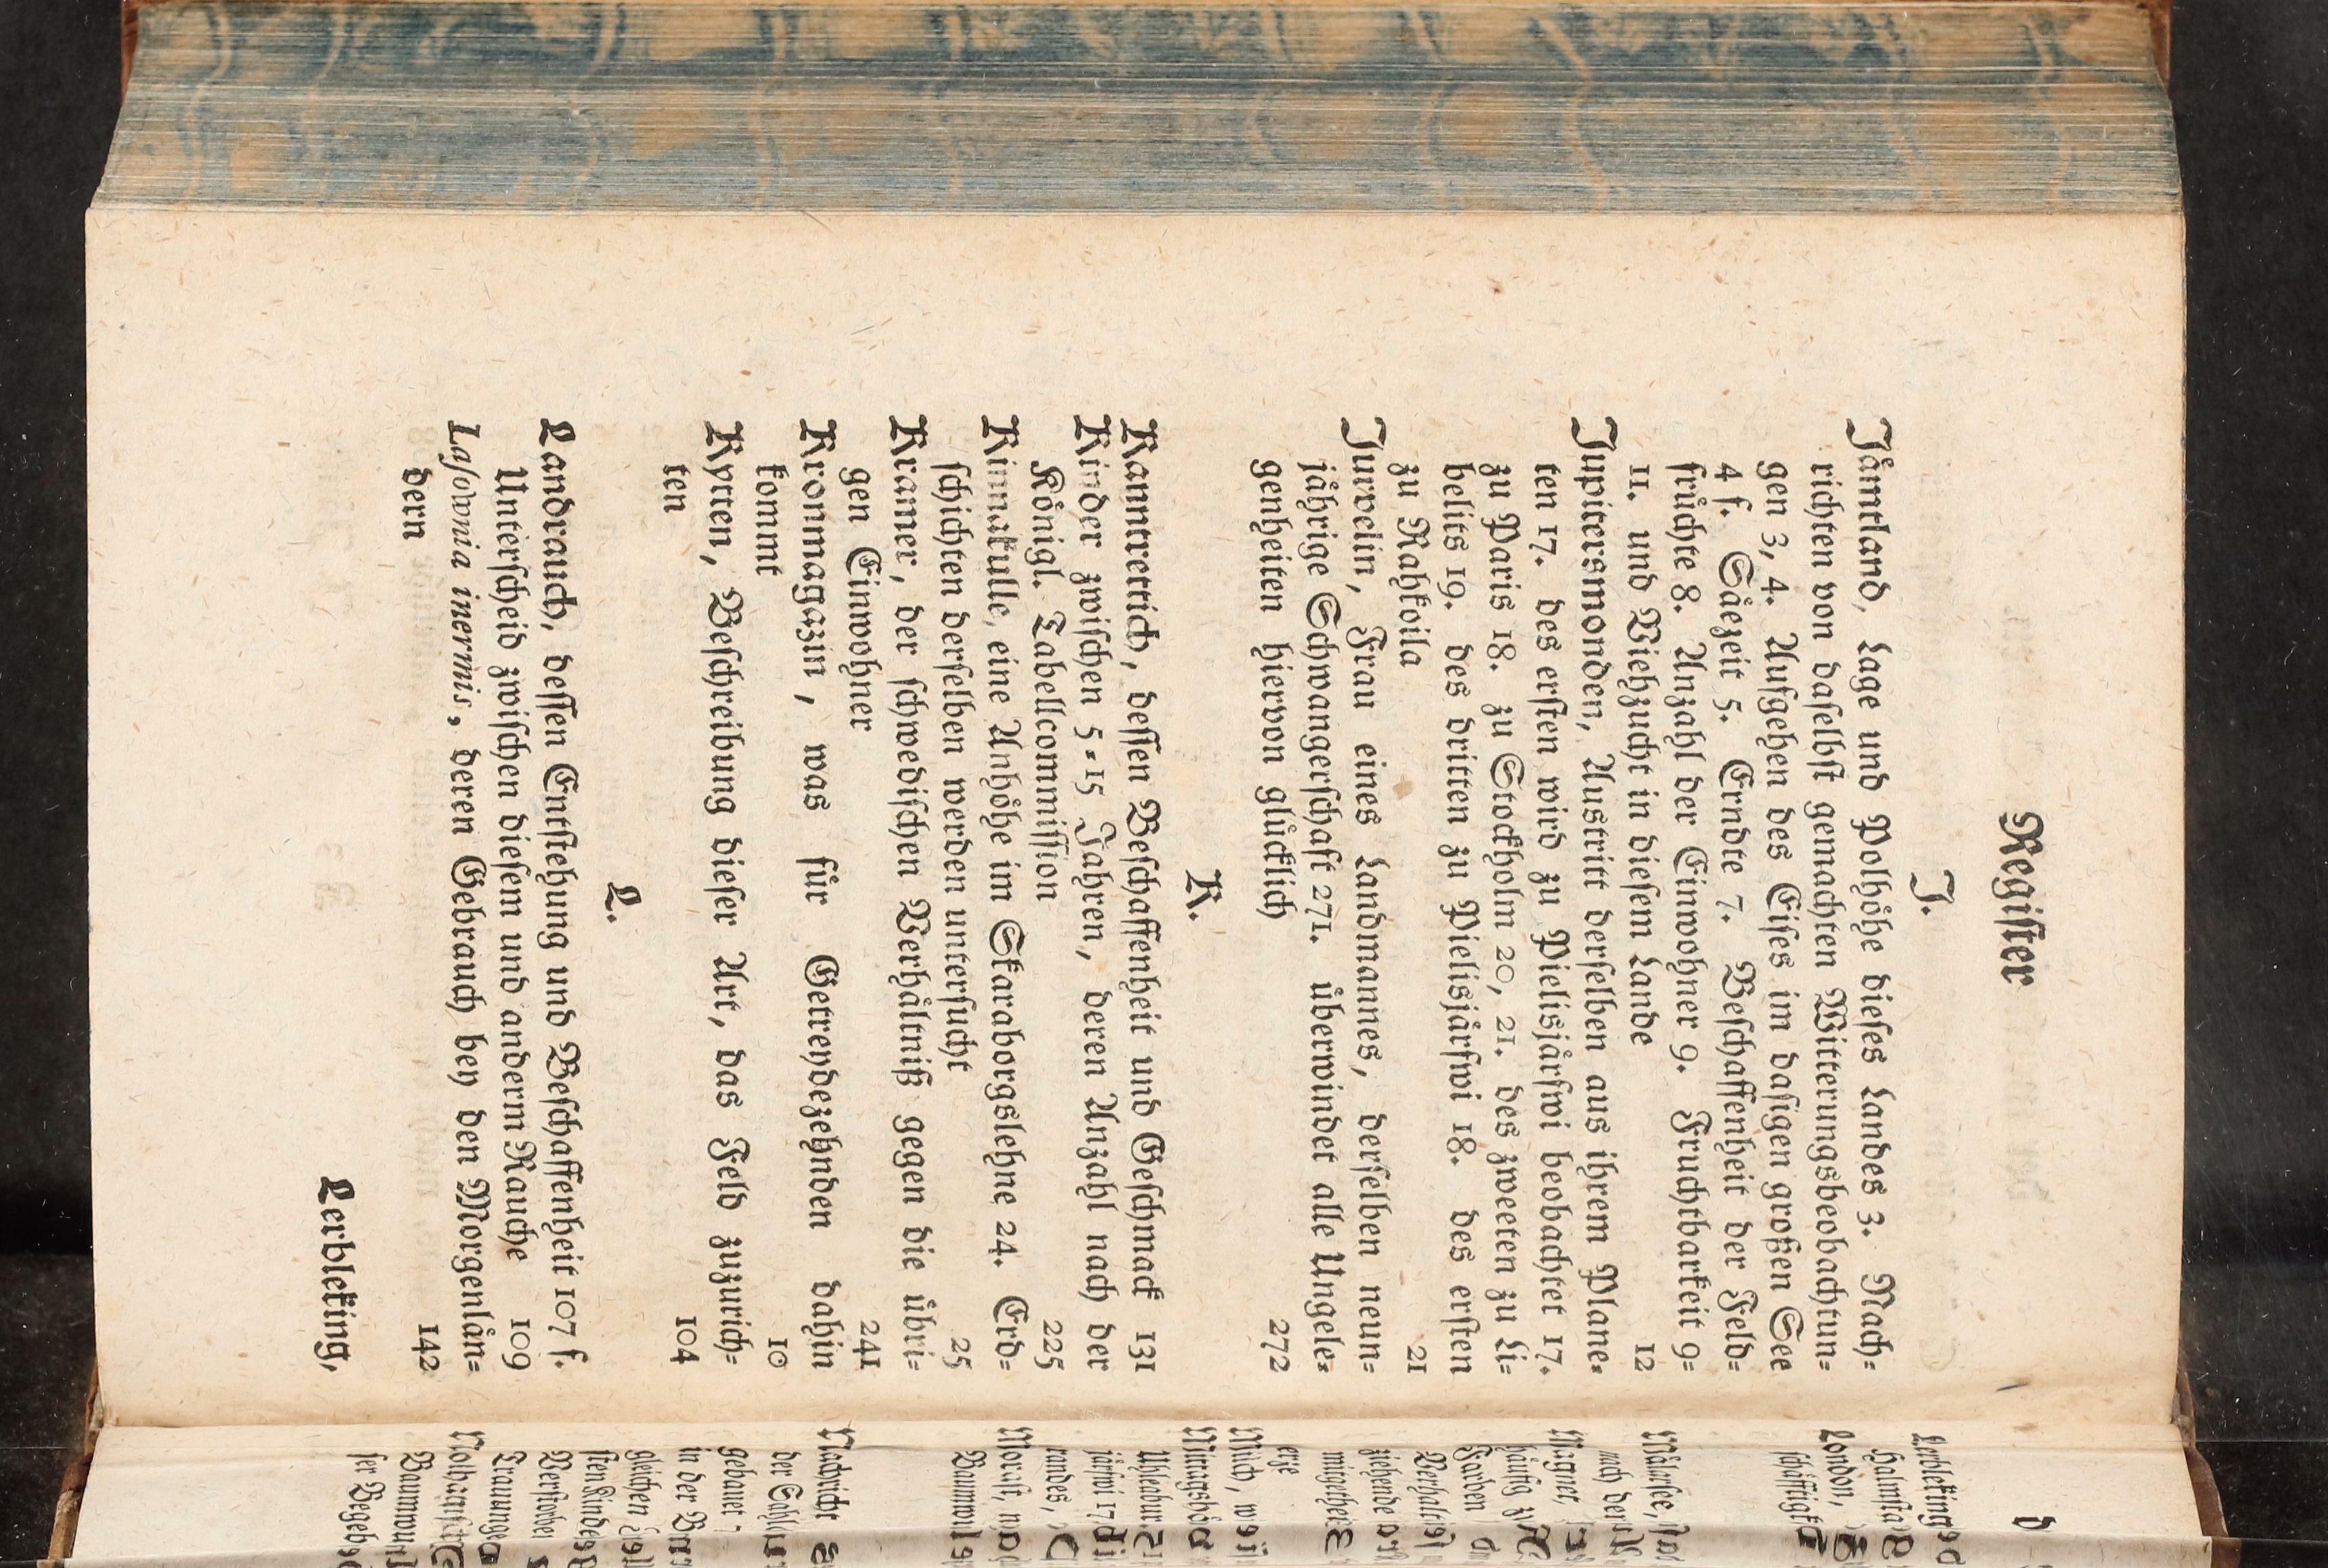 Register
J.
Jåmtland, Lage und Polhöhe dieses Landes 3. Nach-
richten von daselbst gemachten Witterungsbeobachtun-
gen 3, 4. Aufgehen des Eises im dasigen großen See
4 f. Såezeit 5. Erndte 7. Beschaffenheit der Feld-
früchte 8. Anzahl der Einwohner 9. Fruchtbarkeit 9-
11. und Viehzucht in diesem Lande 12
Jupitersmonden, Austritt derselben aus ihrem Plane-
ten 17. des ersten wird zu Pielisjärfwi beobachtet 17.
zu Paris 18. zu Stockholm 20, 21. des zweeten zu Li-
belits 19. des dritten zu Pielisjärfwi 18. des ersten
zu Rahkoila 21
Jurvelin, Frau eines Landmannes, derselben neun-
jährige Schwangerschaft 271. überwindet alle Ungele-
genheiten hiervon glücklich 272
K.
Kanntrettich, dessen Beschaffenheit und Geschmack 131
Kinder zwischen 5-15 Jahren, deren Anzahl nach der
Königl. Tabellcommission 225
Kinnekulle, eine Anhöhe im Skaraborgslehne 24. Erd-
schichten derselben werden untersucht 25
Kramer, der schwedischen Verhältniß gegen die übri-
gen Einwohner 241
Kronmagazin, was für Getreydezehnden dahin
kommt 10
Kytten, Beschreibung dieser Art, das Feld zuzurich-
ten 104
L.
Landrauch, dessen Entstehung und Beschaffenheit 107 f.
Unterscheid zwischen diesem und anderm Rauche 109
Lasownia inermis, deren Gebrauch bey den Morgenlän-
dern 142
Lerbleking,
Lerbleking
Halmsta
London,
schäftigt
Mälarsee,
nach der
Magnet,
häufig zu
Farben
Verhalt
ziehende
mitgethei
erze
Milch,
Mittagshö
Ulheabur
järfwi 17
randes,
Morast,
Baumwu
Nachricht
der Sah
gebauet
in der B
gleichen
sten Kinde
Verstorbe
Trauung
Baumwu
ser Begeb